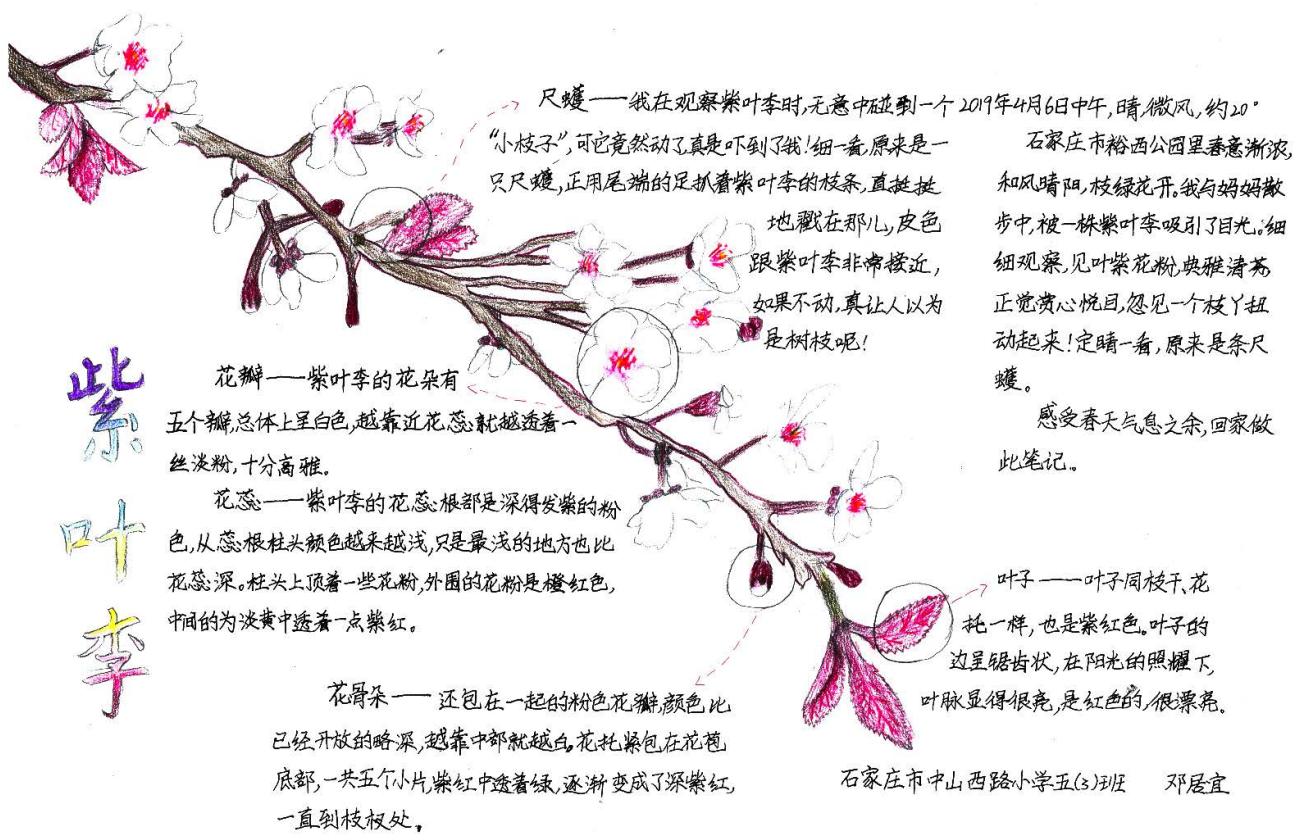 紫叶李
尺蠖——我在观察紫叶李时,无意中碰到一个
“小枝子”,可它竟然动了,真是吓到了我!细一看,原来是一
只尺蠖,正用尾端的足扒着紫叶李的枝条,直挺挺
地戳在那儿,皮色
跟紫叶李非常接近,
如果不动,真让人以为
是树枝呢!
2019年4月6日中午,晴,微风,约20°
石家庄市裕西公园里春意渐浓,
和风晴阳,枝绿花开。我与妈妈散
步中,被一株紫叶李吸引了目光。细
细观察,见叶紫花粉,典雅清芬,
正觉赏心悦目,忽见一个枝丫扭
动起来!定睛一看,原来是条尺
蠖。
感受春天气息之余,回家做
此笔记。
花瓣——紫叶李的花朵有
五个瓣,总体上呈白色,越靠近花蕊就越透着一
丝淡粉,十分高雅。
花蕊——紫叶李的花蕊根部是深得发紫的粉
色,从蕊根柱头颜色越来越浅,只是最浅的地方也比
花蕊深。柱头上顶着一些花粉,外围的花粉是橙红色,
中间的为淡黄中透着一点紫红。
花骨朵——还包在一起的粉色花瓣,颜色比
已经开放的略深,越靠中部就越白。花托紧包在花苞
底部,一共五个小片,紫红中透着绿,逐渐变成了深紫红,
一直到枝杈处。
叶子——叶子同枝干、花
托一样,也是紫红色。叶子的
边呈锯齿状,在阳光的照耀下,
叶脉显得很亮,是红色的,很漂亮。
石家庄市中山西路小学五(3)班 邓居宜